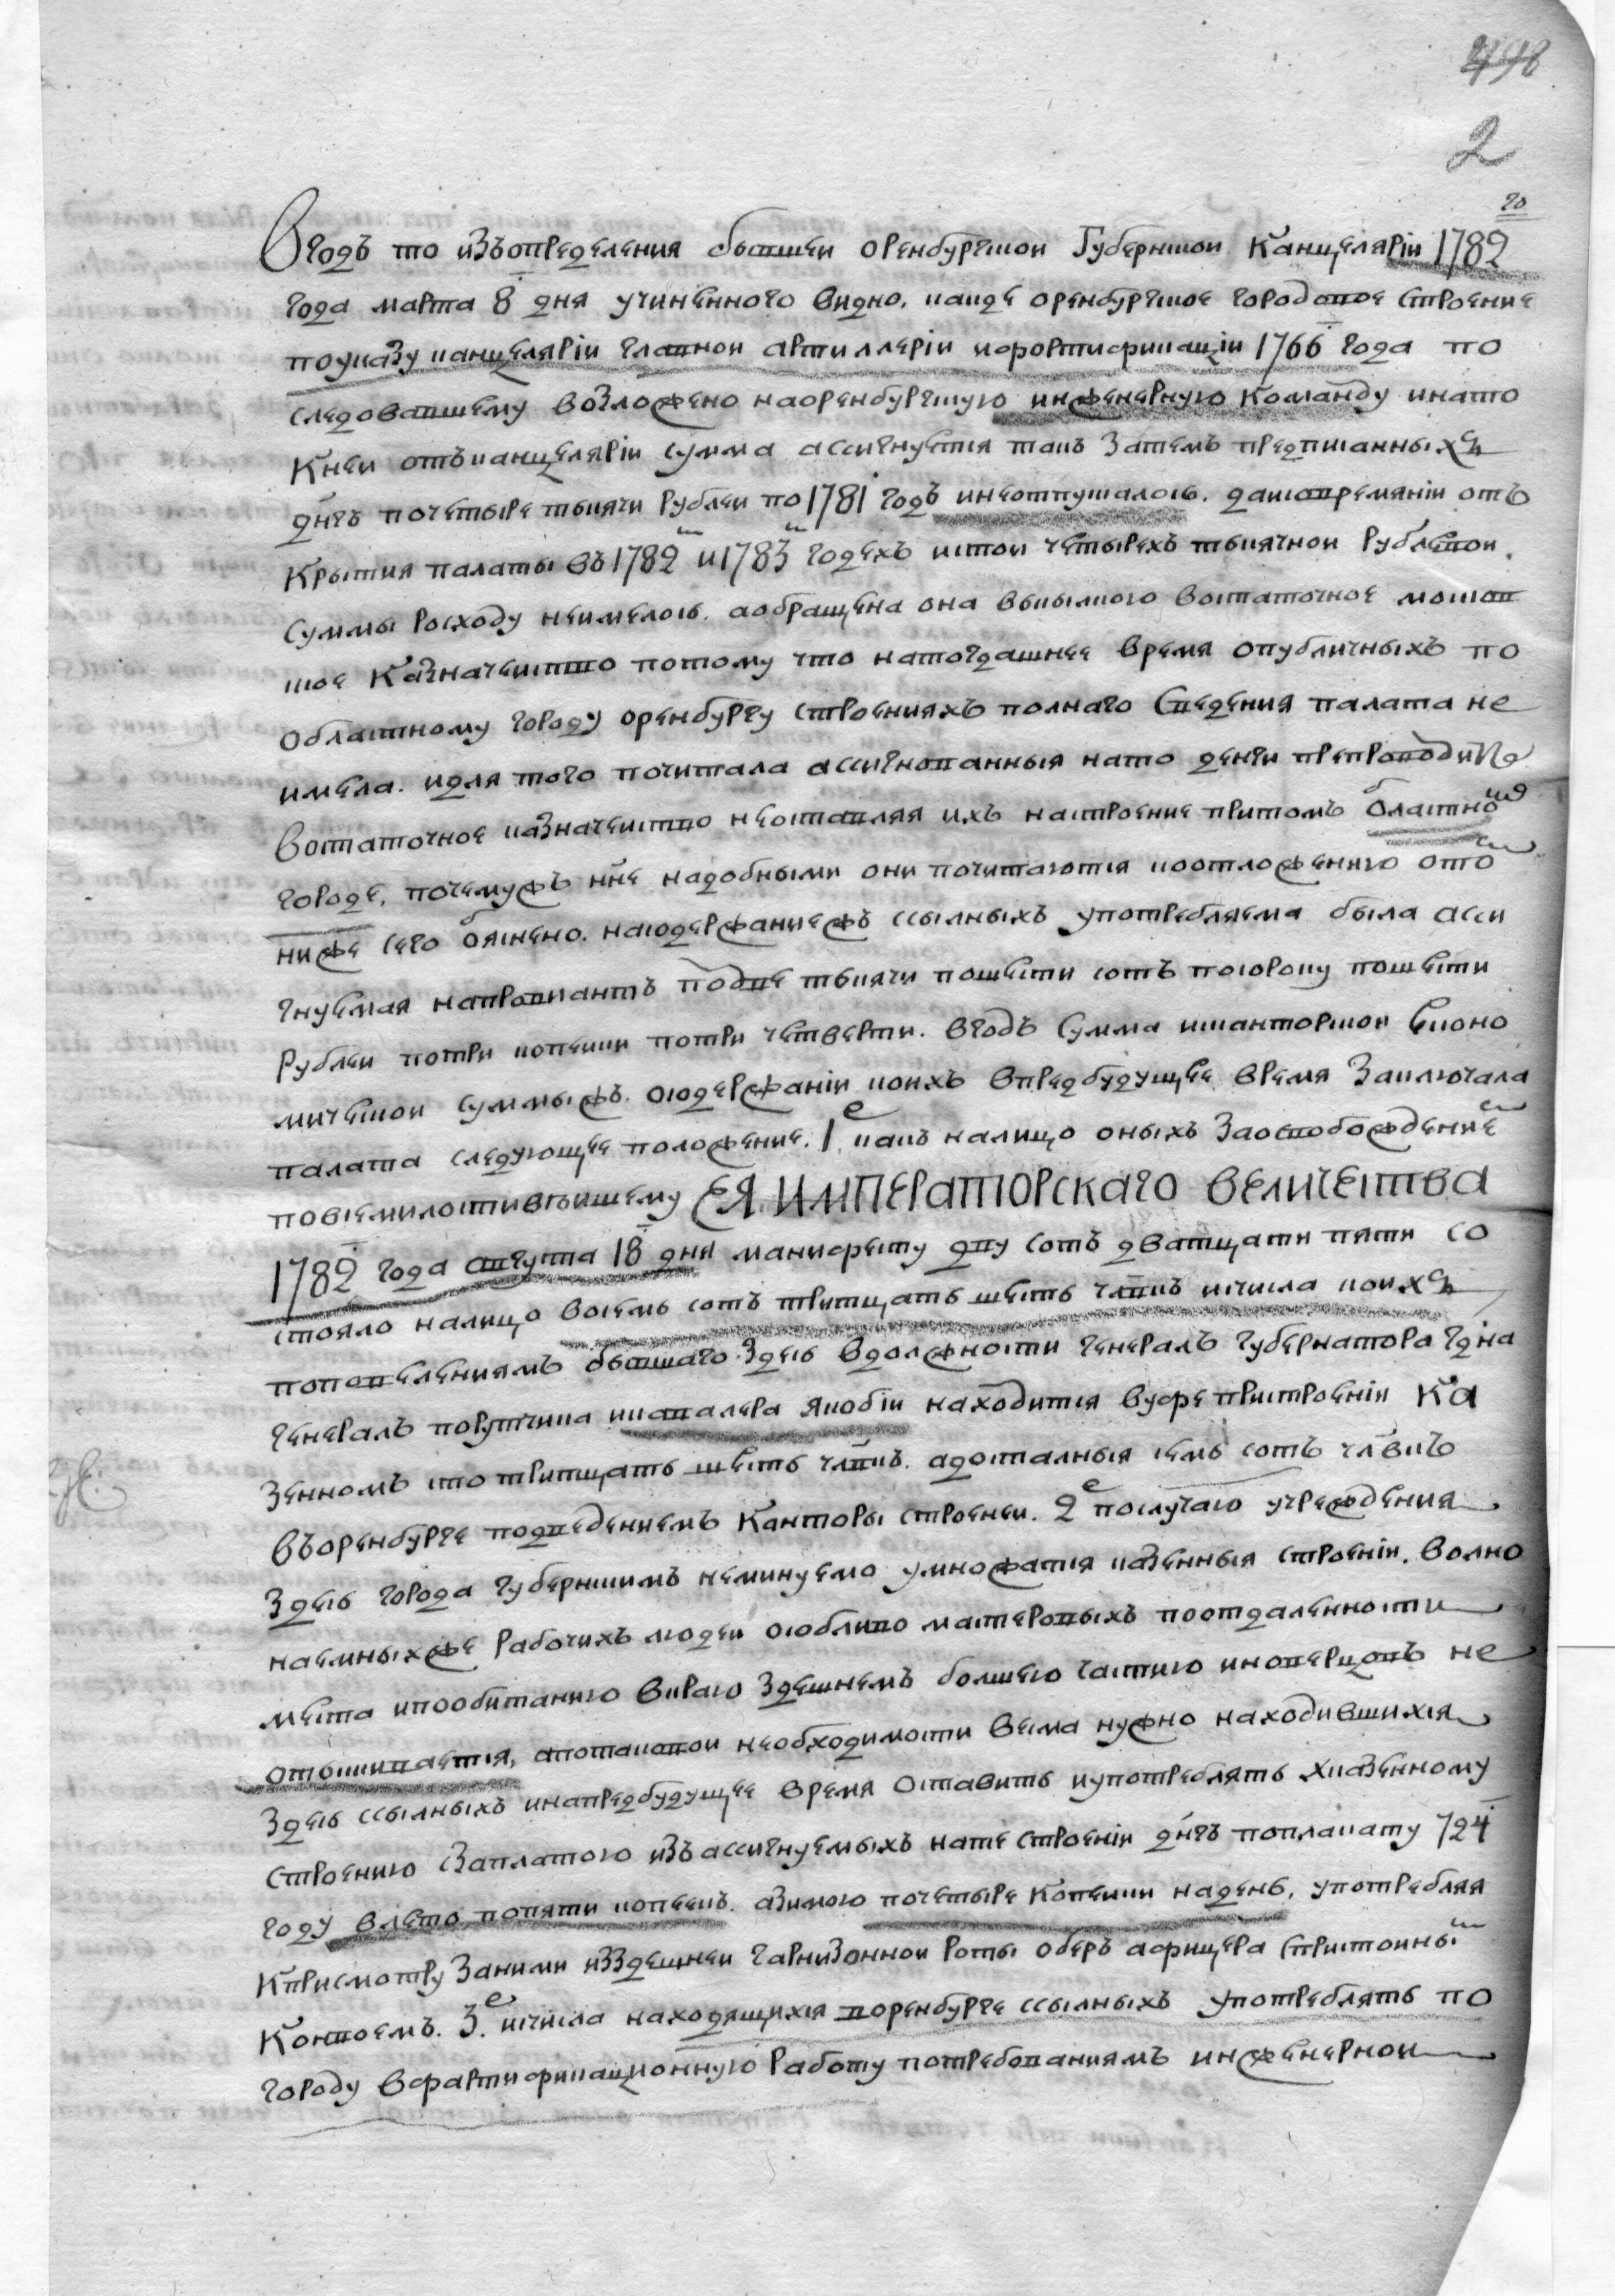 498
2
Вгодъ то изъопределения бывшеи оренбургской Губернской Канцелярiи 1782го
года марта 8 дня учиненного видно. какъде оренбургское городовое строение
поуказу канцелярiи главнои артиллерiи ифортификацiи 1766 года по
следовавшему возложено наоренбургскую инженерную команду инато
Кнеи отъканцелярiи сумма ассигнуется такъ Затемъ предписанныхъ
днгъ почетыре тысячи рублеи по 1781 годъ инеотпускалось. даисовремянiи от
крытия палаты въ 1782м и 1783м годехъ истои четырехъ тысячнои рублевои
суммы росходу неимелось. аобращена она всысылного востаточное московс
кое Казначеиство потому что натогдашнее время опубличныхъ по
областному городу оренбургу строенияхъ полнаго сведения палата не
имела. идля того почитала ассигнованныя нато денги препроводить
востаточное казначеиство неоставляя ихъ настроение притомъ областномъ
городе. почемужъ нне надобными они почитаются иоотложению отомъ
ниже сего обяснено. насодержаниежъ ссылныхъ употребляема была асси
гнуемая напровиантъ подве тысячи пошести сотъ посороку пошести
рублеи потри копеики потри четверти. вгодъ сумма исканторскои Економо
мическои суммыжъ. осодержанiи коихъ впредбудущее время Заключала
палата следующее положение. 1е какъ налицо оныхъ Заосвобождениемъ
повсемилостивѣишему ЕЯ ИМПЕРАТОРСКАГО ВЕЛИЧЕСТВА
1782 года августа 18 дня манифесту дву сотъ дватцати пяти со
стояло налицо восемь сотъ тритцать шесть члвкъ исчисла коихъ
поповелениямъ бывшаго Здесь вдолжности генералъ губернатора гдна
генералъ порутчика икавалера якобiи находится вуфе пристроенiи ка
зенномъ сто тритцать шесть члвкъ. адосталныя семь сотъ члвкъ
въоренбурге подведениемъ Канторы строенеи. 2е послучаю учреждения
Здесь города губернскимъ неминуемо умножатся казенныя строенiи. волно
наемныхже рабочихъ людеи особливо мастеровыхъ поотдаленности
места ипообитанию вкраю Здешнемъ болшею частию иноверцовъ не
отыскивается, апотаковои необходимости весма нужно находившихся
Здесь ссылныхъ инапредбудущее время оставить иупотреблять хказенному
строению Заплатою изъассигнуемыхъ нате строенiи днгъ поплакату 724
году влето попяти копеекъ. азимою почетыре копеики надень, употребляя
Кприсмотру Заними изздешнеи гарнизоннои роты оберъ афицера спристоинымъ
Конвоемъ. 3е. исчисла находящихся воренбурге ссылныхъ употреблять по
городу вфартификационную работу потребованиямъ инженернои